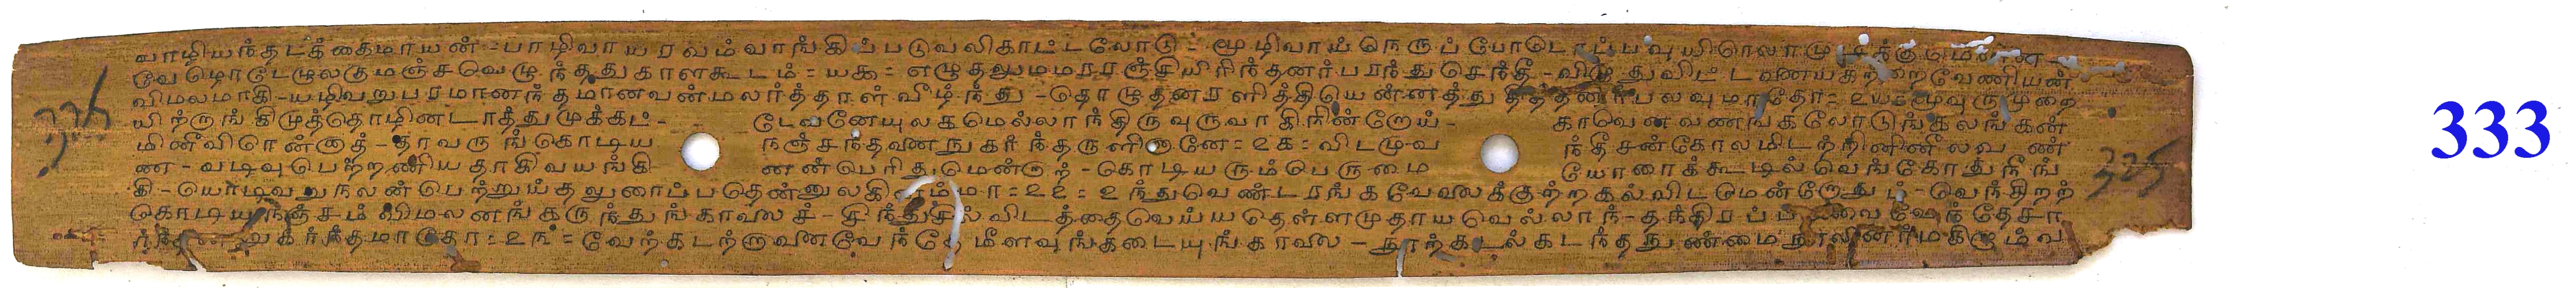 வாழியந்தடக்கைமாயன் = பாழிவாயரவம்வாங்கிப்படுவலிகாட்டலோடு = மூழிவாய் நெருப்போடொப்பவுயிரெலாமு
வேழொடேழுலகுமஞ்சவெழுந்ததுகாளகூடம் = யக = எழுதலுமமரரஞ்சியிரிந்தனர்பரந்துசெந்தீ - விழுதுவிட்டவேணியன்
விமலமாகி - யழிவறுபரமானந்தமானவன்மலர்த்தாள்வீழ்ந்து - தொழுதனரளித்தியென்னத்துதித்தனர்பலவுமாதோ = உய = மூவுருமுறை
யிற்றாங்கிமுத்தொழினடாத்துமுக்கட் - டேவனேயுலகமெல்லாந்திருவுருவாகிநின்றோய் - காவெனவணங்கலோடுங்கலங்கன்
மினீவிரென்னாத் - தாவருங்கொடிய நஞ்சந்தவணநுகர்ந்தருளினானே = உக = விடமுவ ந்தீசன்கோலமிடற்றினினீலவண்
ண - வடிவுபெற்றணியதாகிவயங்கி னன்பெரிதுமென்றாற் - கொடியரும்பெருமை யோரைக்கூடில்வெங்கோதுநீங்
கி - யொடிவறுநலன்பெற்றுய்தலுரைப்பதென்னுலகிலம்மா = உஉ = உந்துவெண்டரங்கவேலைக்குற்றகல்விட்டுமென்றோதும் - வெந்திறற்
கொடியநஞ்சம் விமலனங்கருந்துங்காலைச் - சிந்துசில்விடத்தைவெய்யதெள்ளமுதாயவெல்லாந் - தந்திரப் தேசா
நுகர்ந்தமாதோ = உங = வேற்கடற்றானவேந்தே மீளவுங்கடையுங்காலை - நூற்கடல்கடந்தநுண்மைநூலினர்மகிழும்வ
333